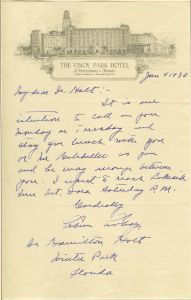 THE VINOY PARK HOTEL
St. Petersburg, Florida
Jan 4 1930
My dear Dr. Holt:-
It is our
intention to call on you
Monday or Tuesday and
stay for lunch with you
or
and he may arrange between
you. I expect to reach Lakeside
Saturday P.M.
Cordially
Dr Hamilton Holt
Winter Park
Florida